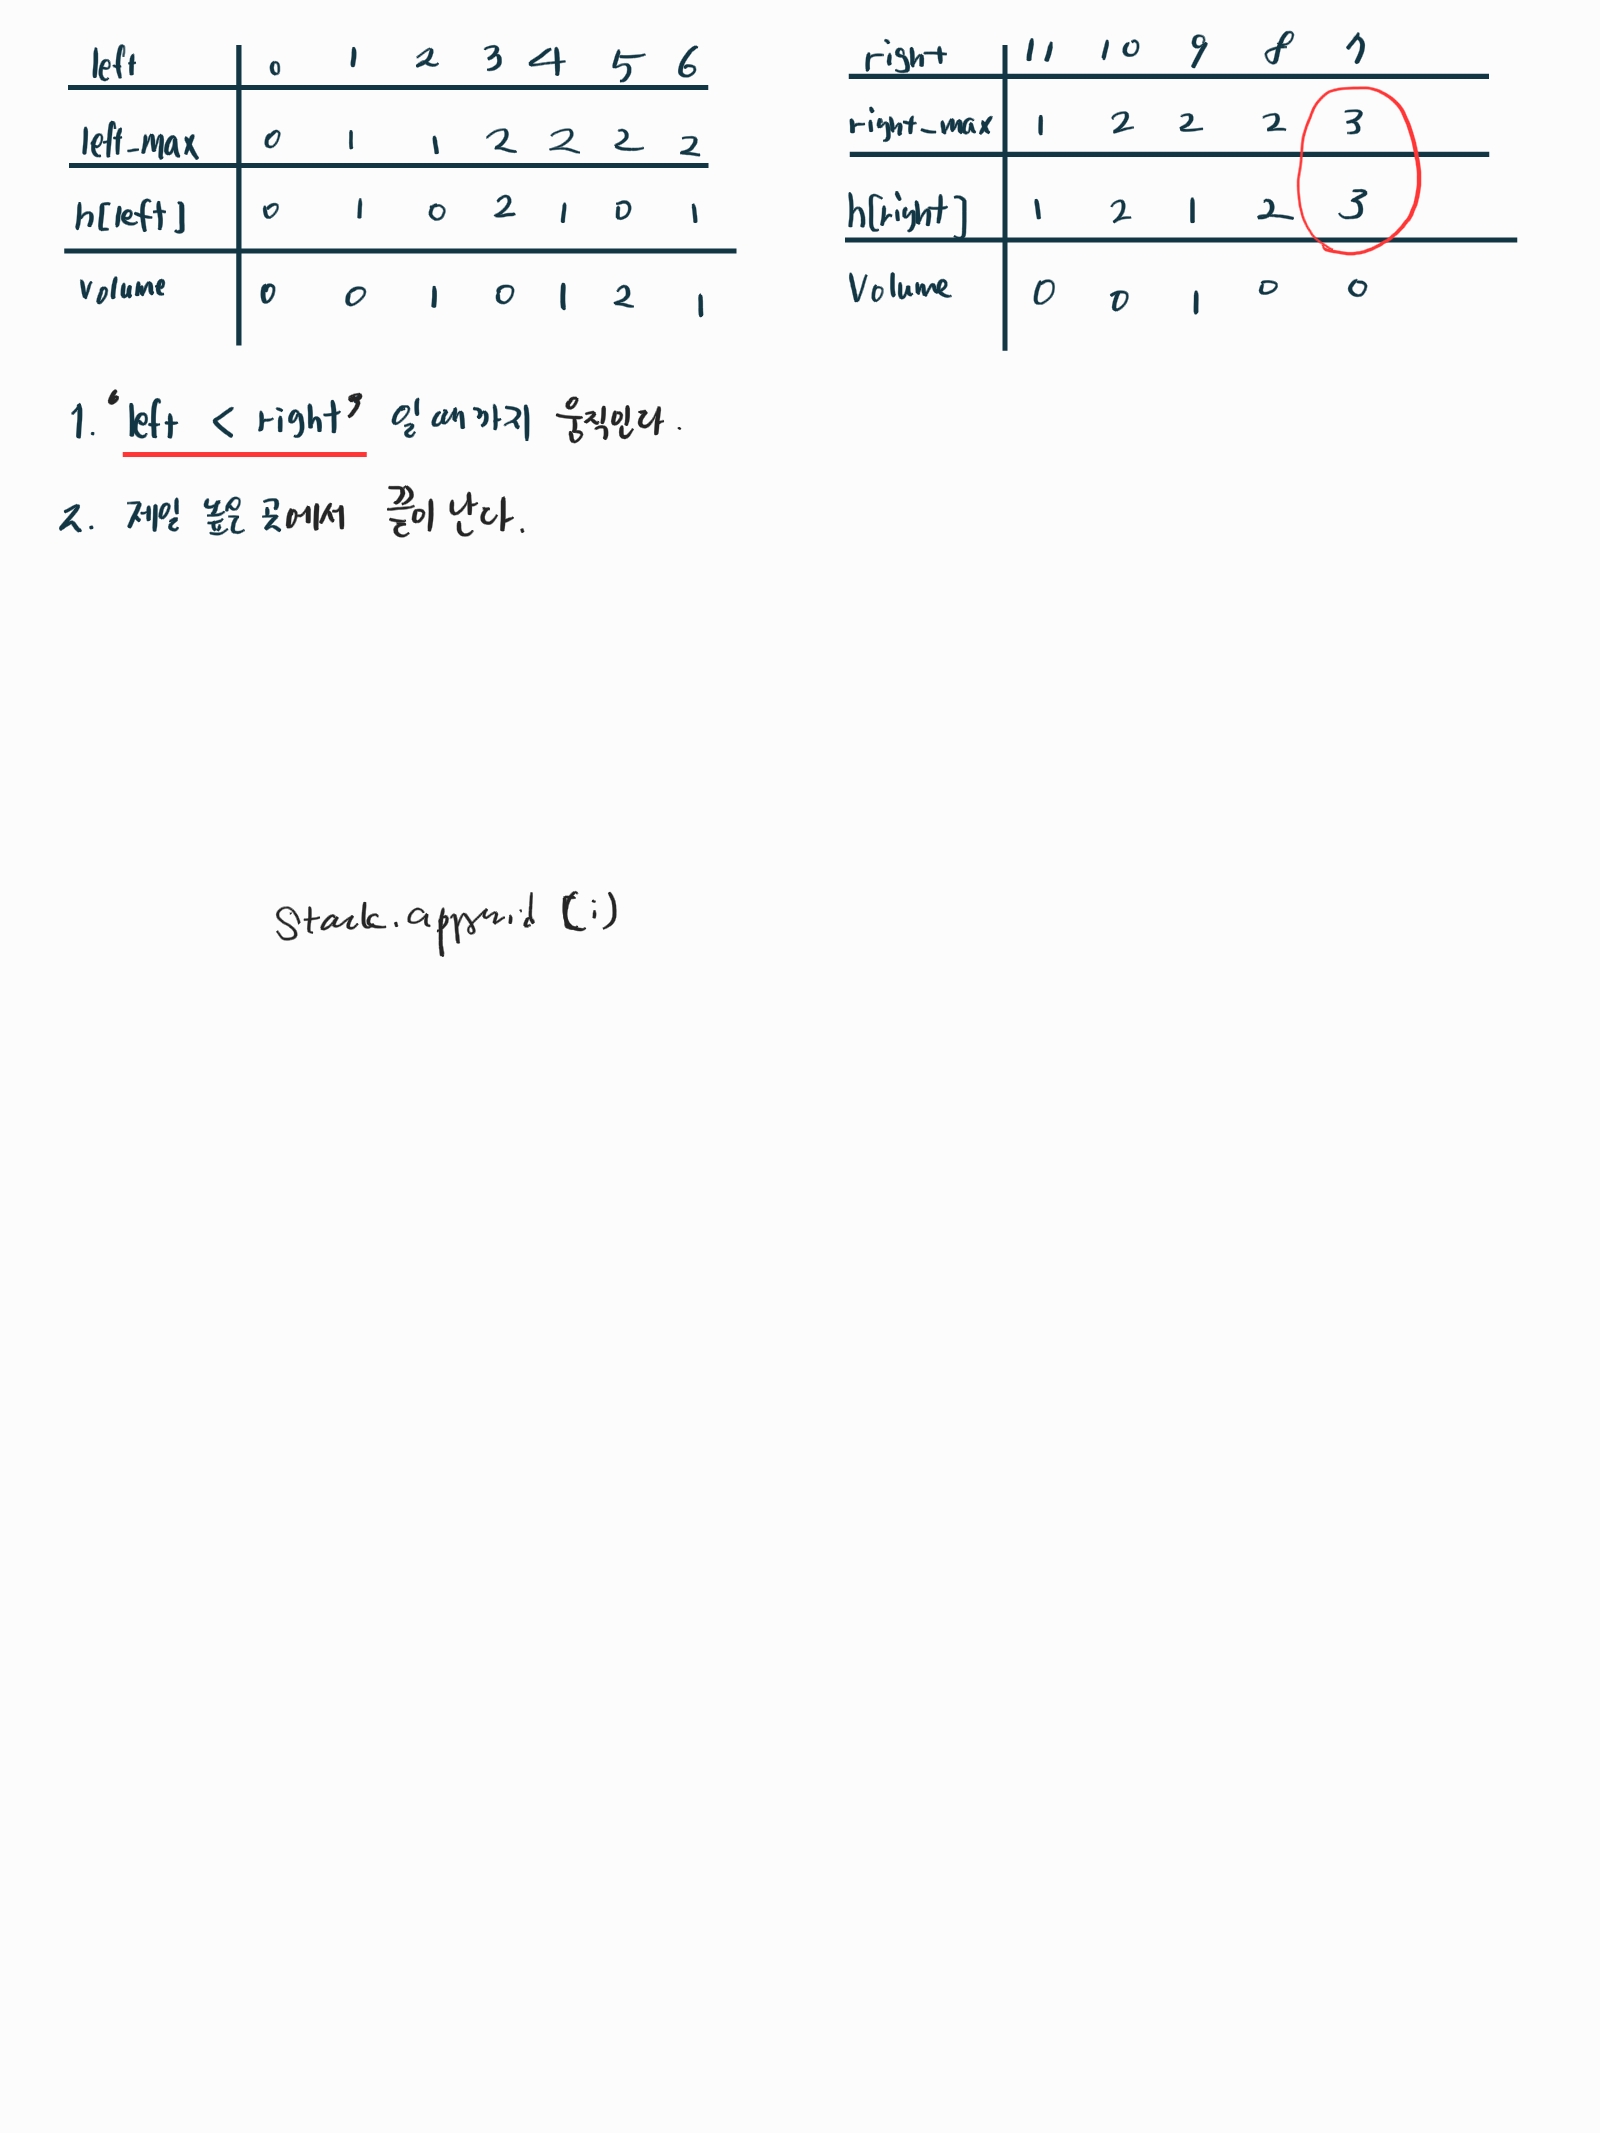 left 0 1 2 3 4 5 6
left_max 0 1 1 2 2 2 2
h[left] 0 1 0 2 1 0 1
volume 0 0 1 0 1 2 1
right 11 10 9 8 7
right_max 1 2 2 2 3
h[right] 1 2 1 2 3
Volume 0 0 1 0 0
1. ‘left < right’ 일 때까지 움직인다.
2. 제일 높은 곳에서 끝이 난다.
Stack.append (i)